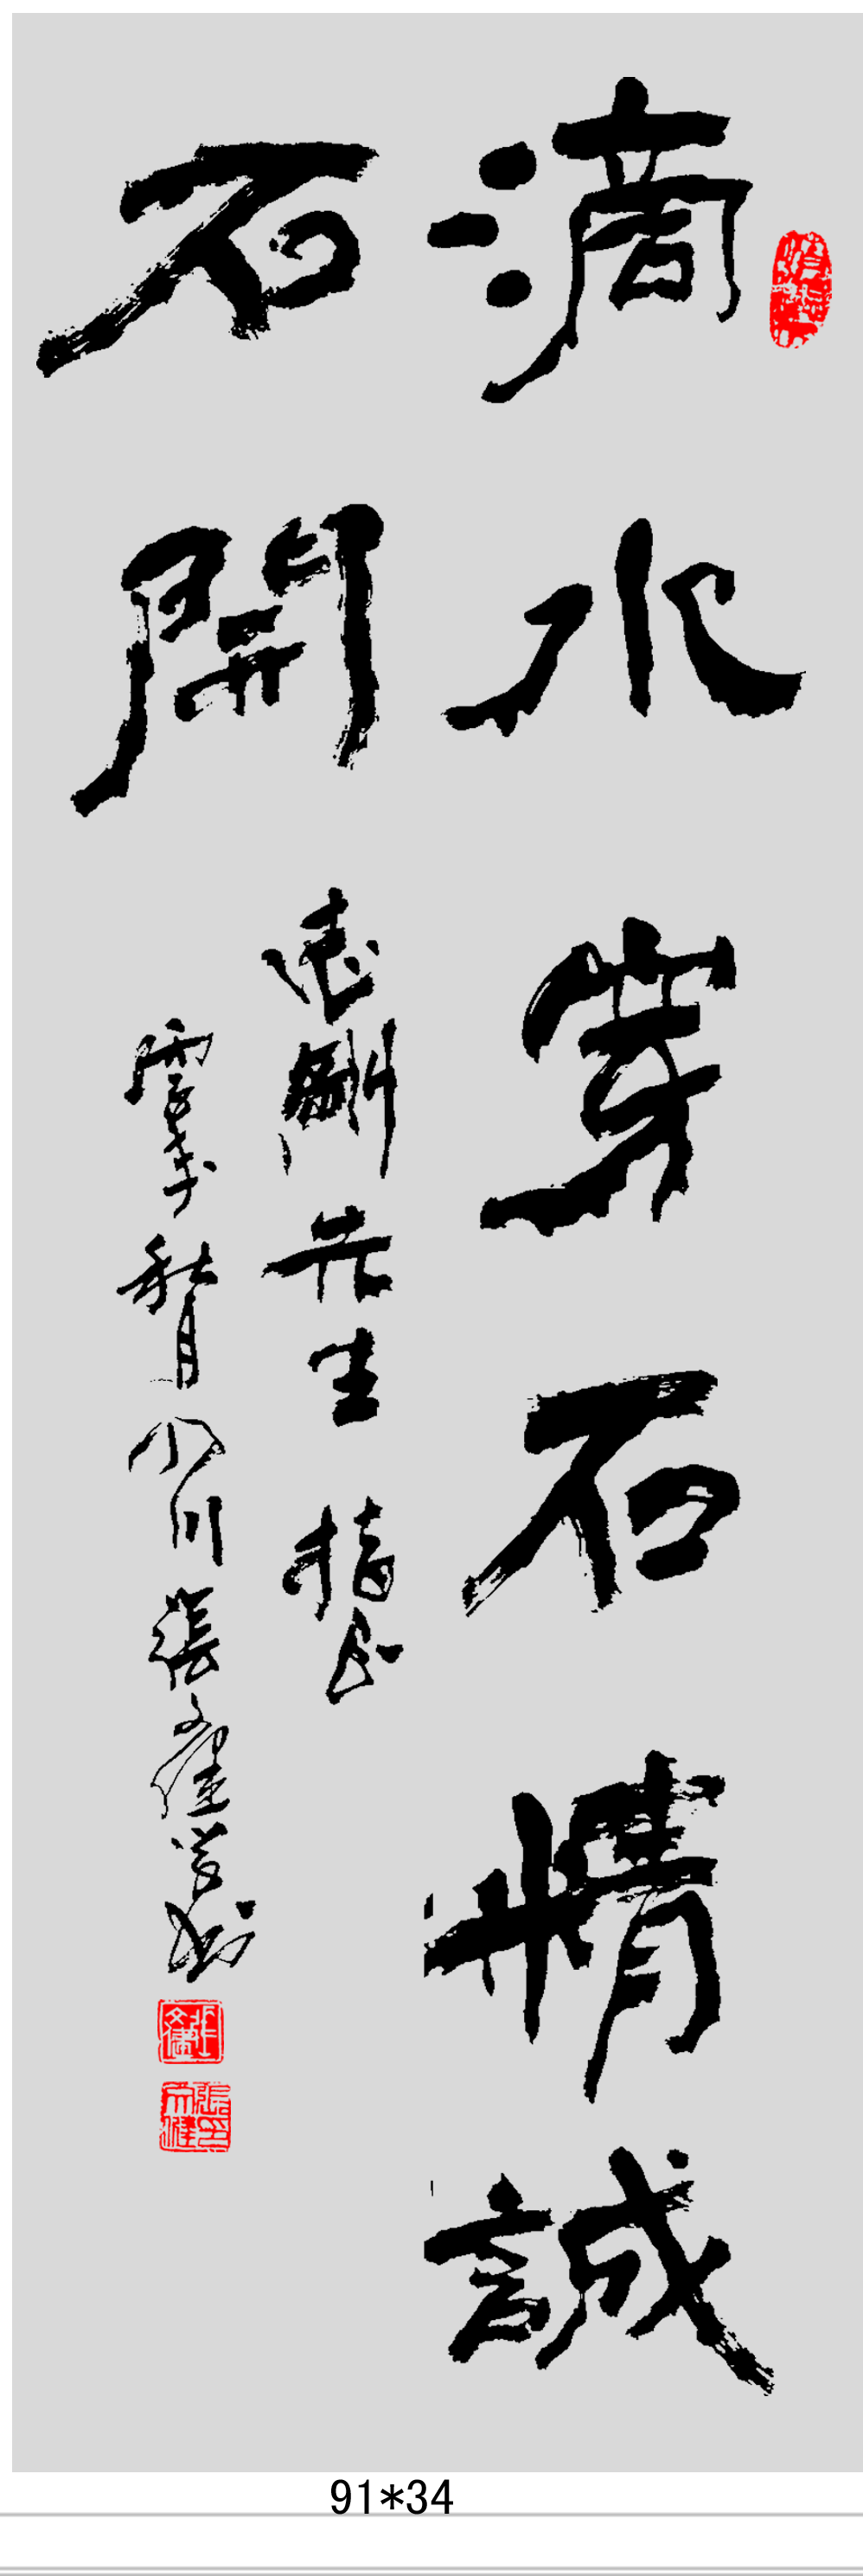 滴水穿石精誠
石開
志剛先生指正
秋月小川張文健
91*34